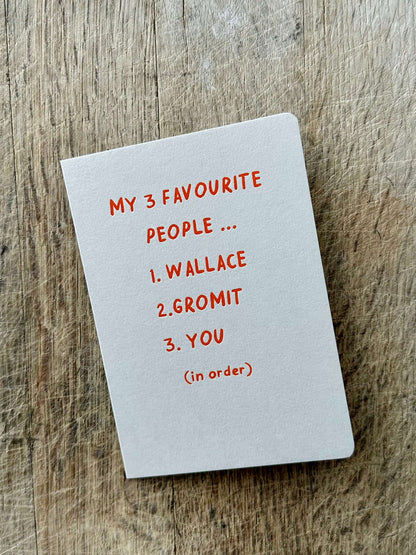 MY 3 FAVOURITE
PEOPLE ...
1. WALLACE
2. GROMIT
3. YOU
(in order)